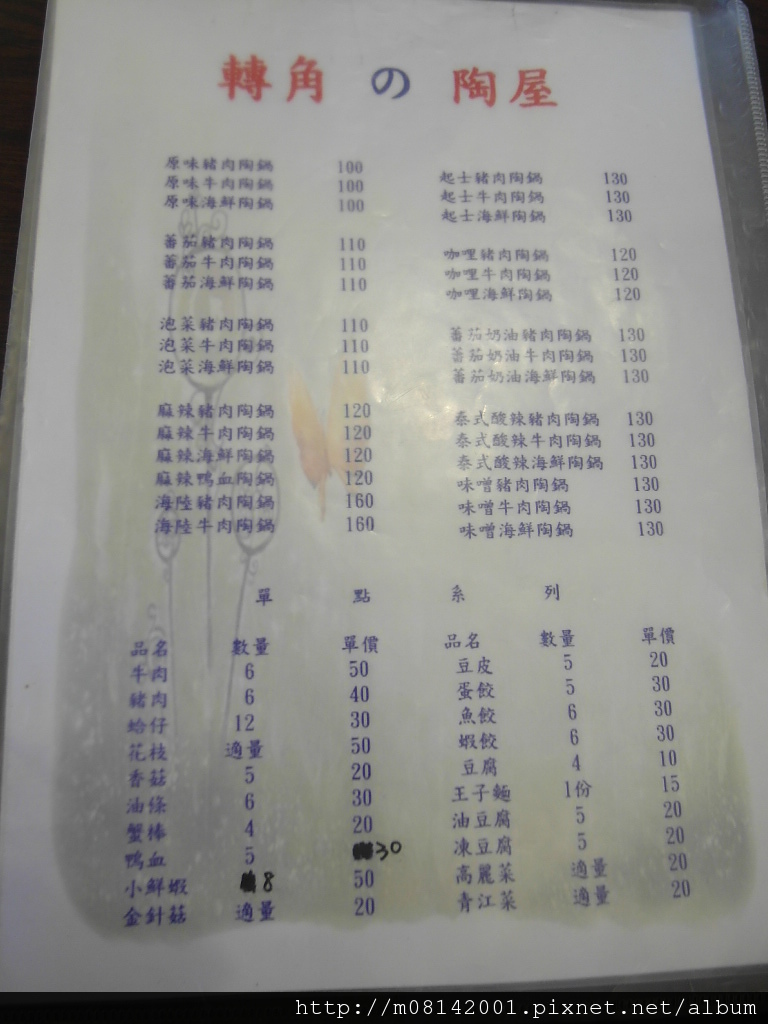 轉角の陶屋
原味豬肉陶鍋 100
原味牛肉陶鍋 100
原味海鮮陶鍋 100
蕃茄豬肉陶鍋 110
蕃茄牛肉陶鍋 110
蕃茄海鮮陶鍋 110
泡菜豬肉陶鍋 110
泡菜牛肉陶鍋 110
泡菜海鮮陶鍋 110
麻辣豬肉陶鍋 120
麻辣牛肉陶鍋 120
麻辣海鮮陶鍋 120
麻辣鴨血陶鍋 120
海陸豬肉陶鍋 160
海陸牛肉陶鍋 160
起士豬肉陶鍋 130
起士牛肉陶鍋 130
起士海鮮陶鍋 130
咖哩豬肉陶鍋 120
咖哩牛肉陶鍋 120
咖哩海鮮陶鍋 120
蕃茄奶油豬肉陶鍋 130
蕃茄奶油牛肉陶鍋 130
蕃茄奶油海鮮陶鍋 130
泰式酸辣豬肉陶鍋 130
泰式酸辣牛肉陶鍋 130
泰式酸辣海鮮陶鍋 130
味噌豬肉陶鍋 130
味噌牛肉陶鍋 130
味噌海鮮陶鍋 130
單點系列
品名 數量 單價
牛肉 6 50
豬肉 6 40
蛤仔 12 30
花枝 適量 50
香菇 5 20
油條 6 30
蟹棒 4 20
鴨血 5 30
小鮮蝦 8 50
金針菇 適量 20
品名 數量 單價
豆皮 5 20
蛋餃 5 30
魚餃 6 30
蝦餃 6 30
豆腐 4 10
王子麵 1份 15
油豆腐 5 20
凍豆腐 5 20
高麗菜 適量 20
青江菜 適量 20
http://m08142001.pixnet.net/album